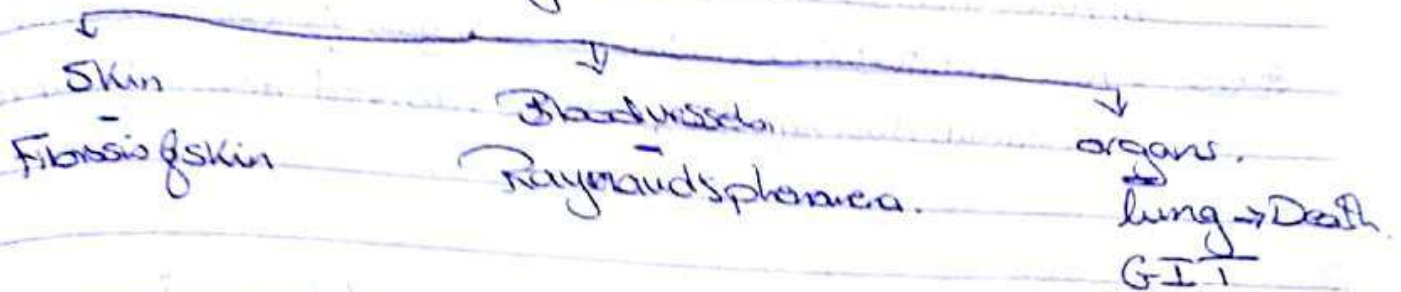 Skin
Fibrosis of skin
Bloodvessels
Raynaudsphenomea.
organs.
lung → Death
GIT